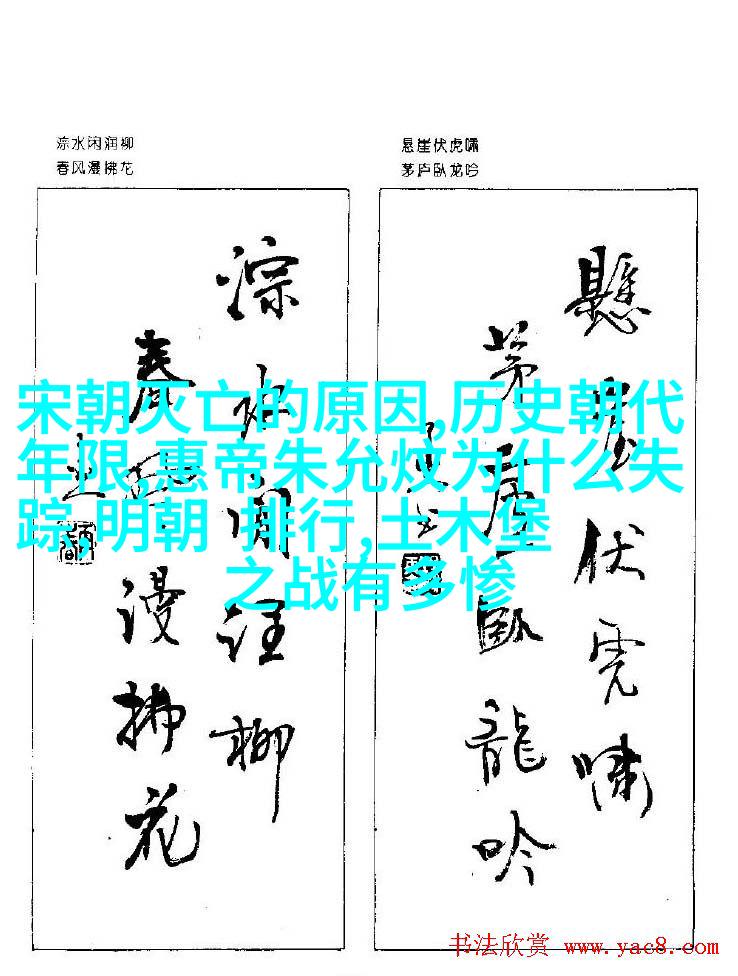 淙水闲润柳
春风漫拂花
悬崖伏虎啸
茅庐卧龙吟
淙水闲润柳
春风漫拂花
懸崖伏虎嘯
茅廬臥龍吟
宋朝灭亡的原因,历史朝代
年限,惠帝朱允炆为什么失
踪,明朝 排行,土木堡
之战有多惨
书法欣赏 www.yac8.com